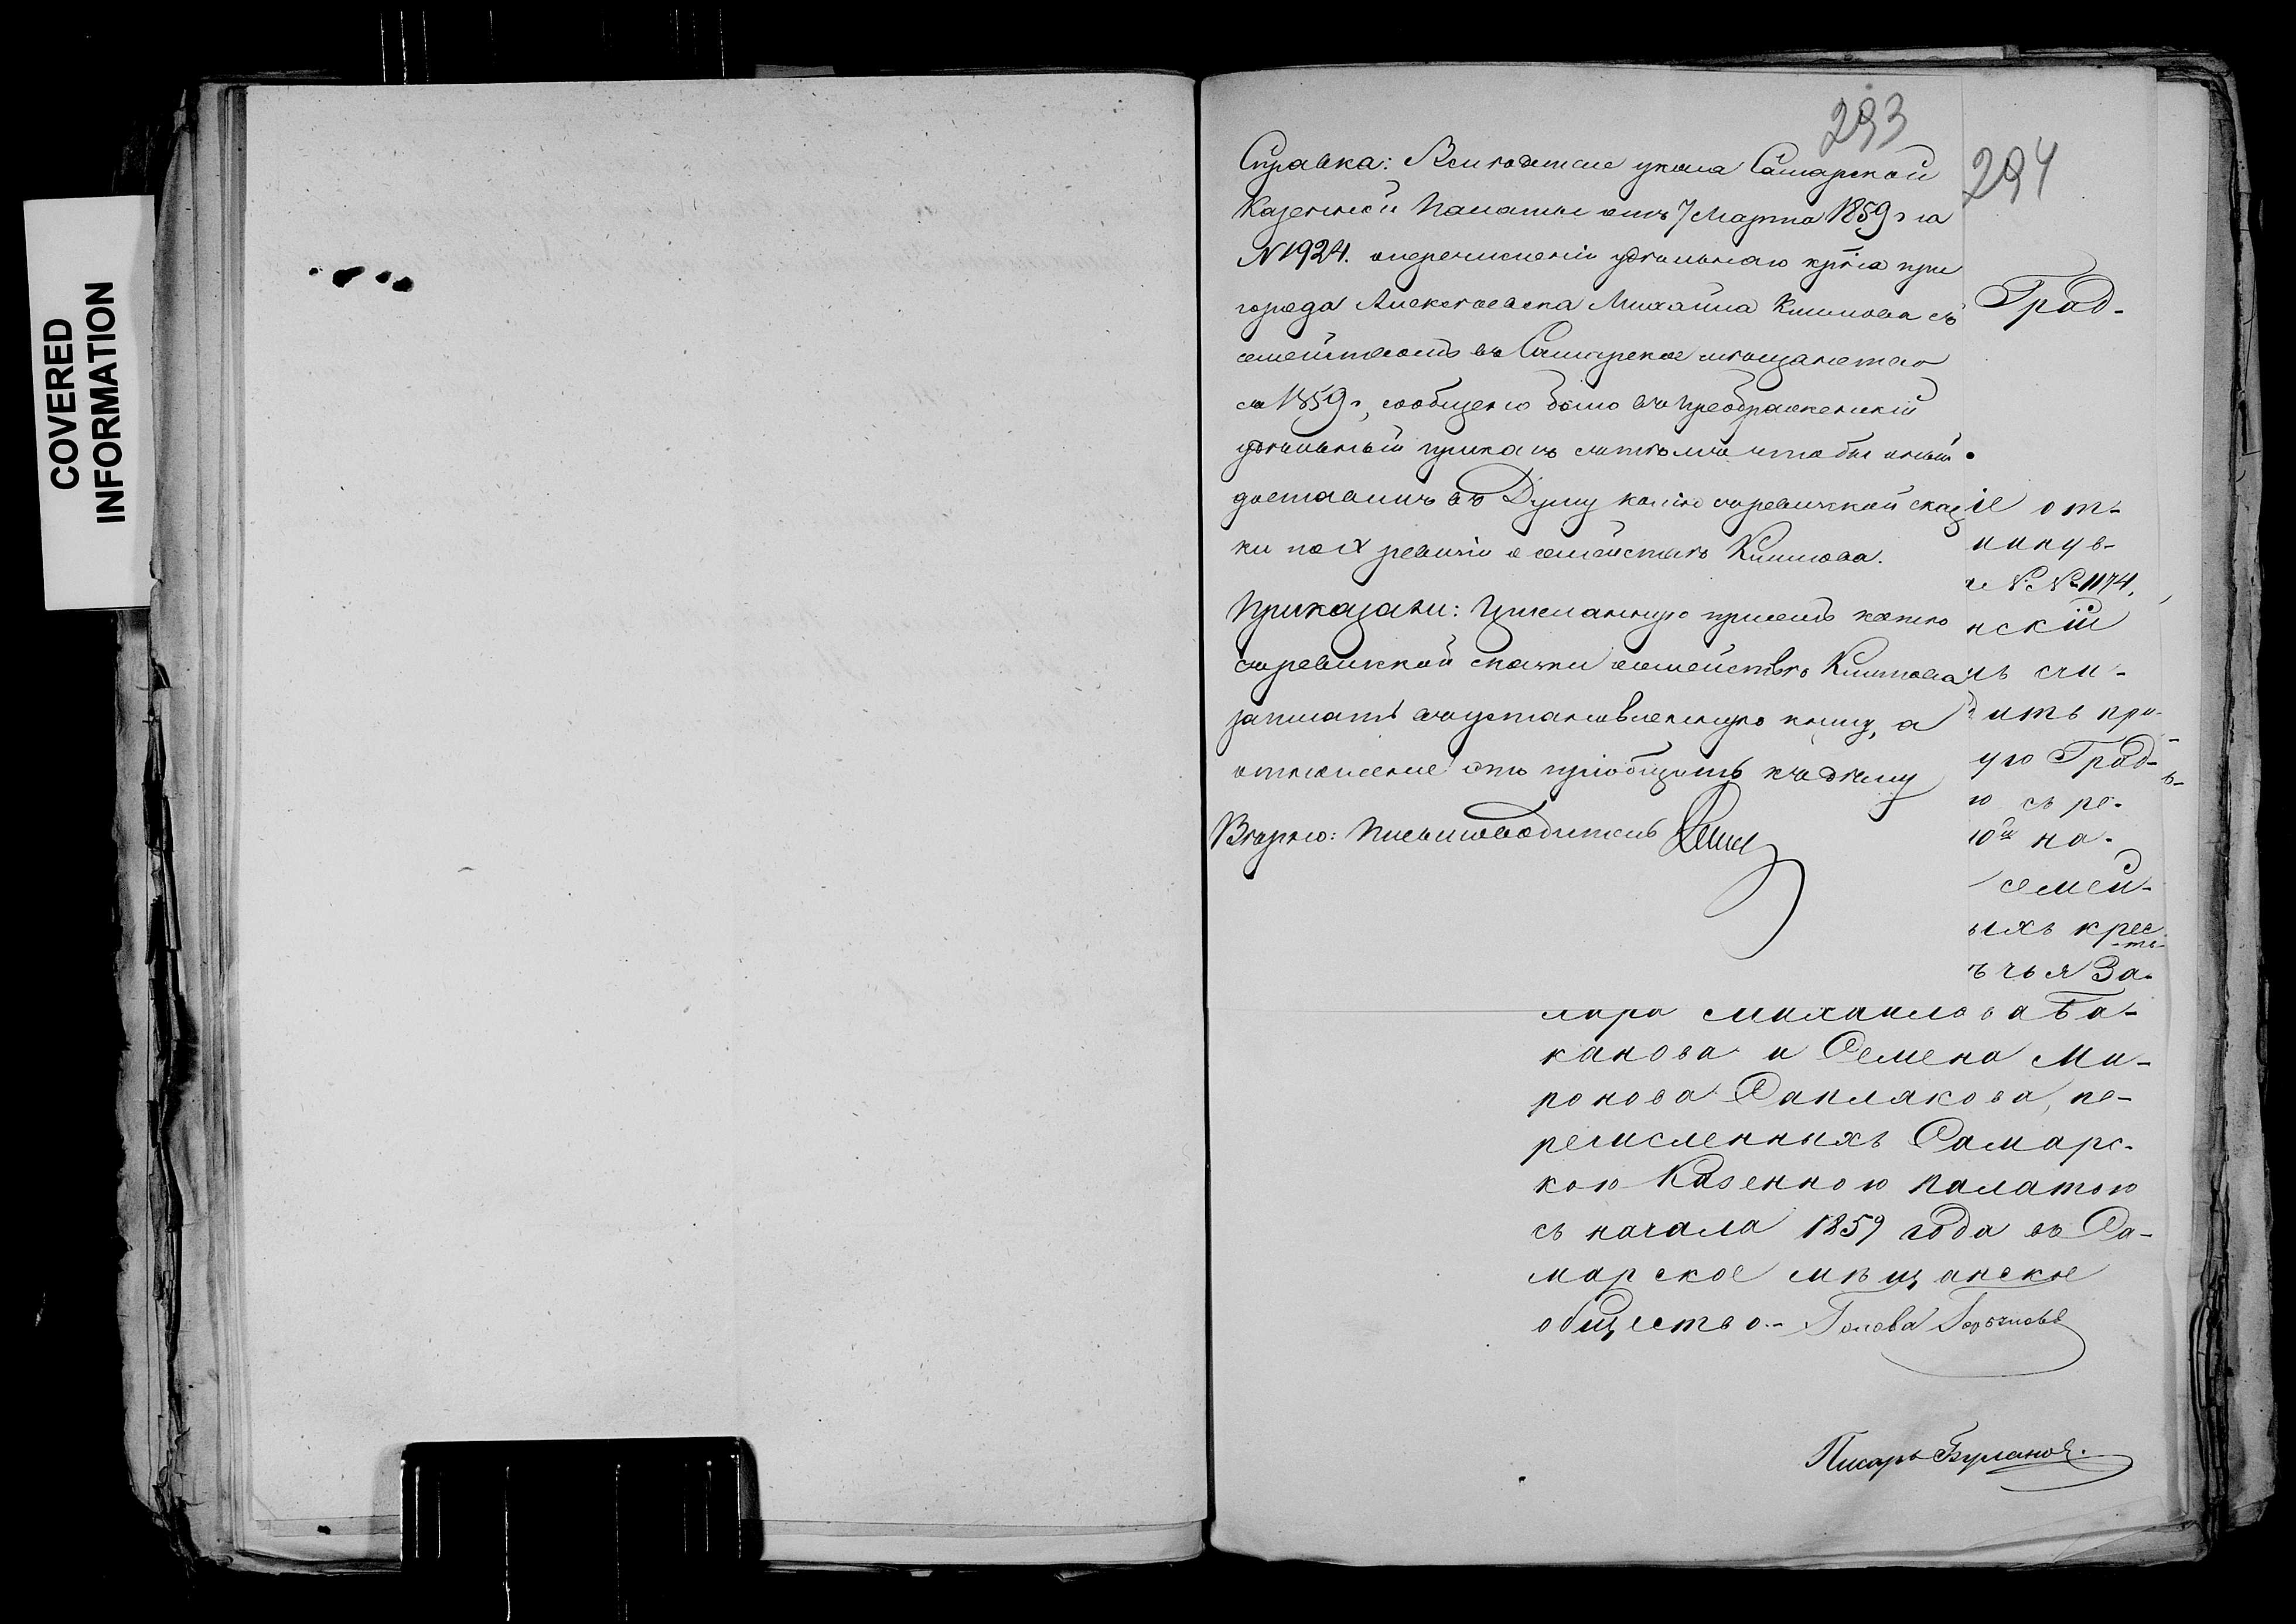 COVERED
INFORMATION
293
Справка: Вслѣдствіе указа Самарской
Казенной Палаты отъ 7 Марта 1859 г за
№ 1924. о перечисленіи удѣльнаго кр̃на при
города Алексѣевска Михаила Климова съ
семействомъ въ Самарское мѣщанство
съ 1859 г, сообщено было въ Преображенскій
удѣльный приказъ съ тѣмъ чтобы оный
доставилъ въ Думу копію съ ревизкой сказ
ки по X ревизіи о семействѣ Климова.
Приказали: Присланную при семъ копію
съ ревизкой сказки о семействѣ Климова
записать въ установленную книгу, а
отношеніе это пріобщить къ дѣлу
Вѣрно: Письмоводитель
294
Град-
іе от-
минув-
№ № 1174,
нскій
ть сч-
ить при-
ую Град-
ю съ ре-
10й на-
семей-
ыхъ крес
-ть-
ъчья За-
хара Михаилова Ба-
канова и Семена Ми-
ронова Саплякова, пе-
речисленныхъ Самарс-
кою Казенною Палатою
съ начала 1859 года въ Са-
марское мѣщанское
общество.- Голова
Писарь Булановъ.